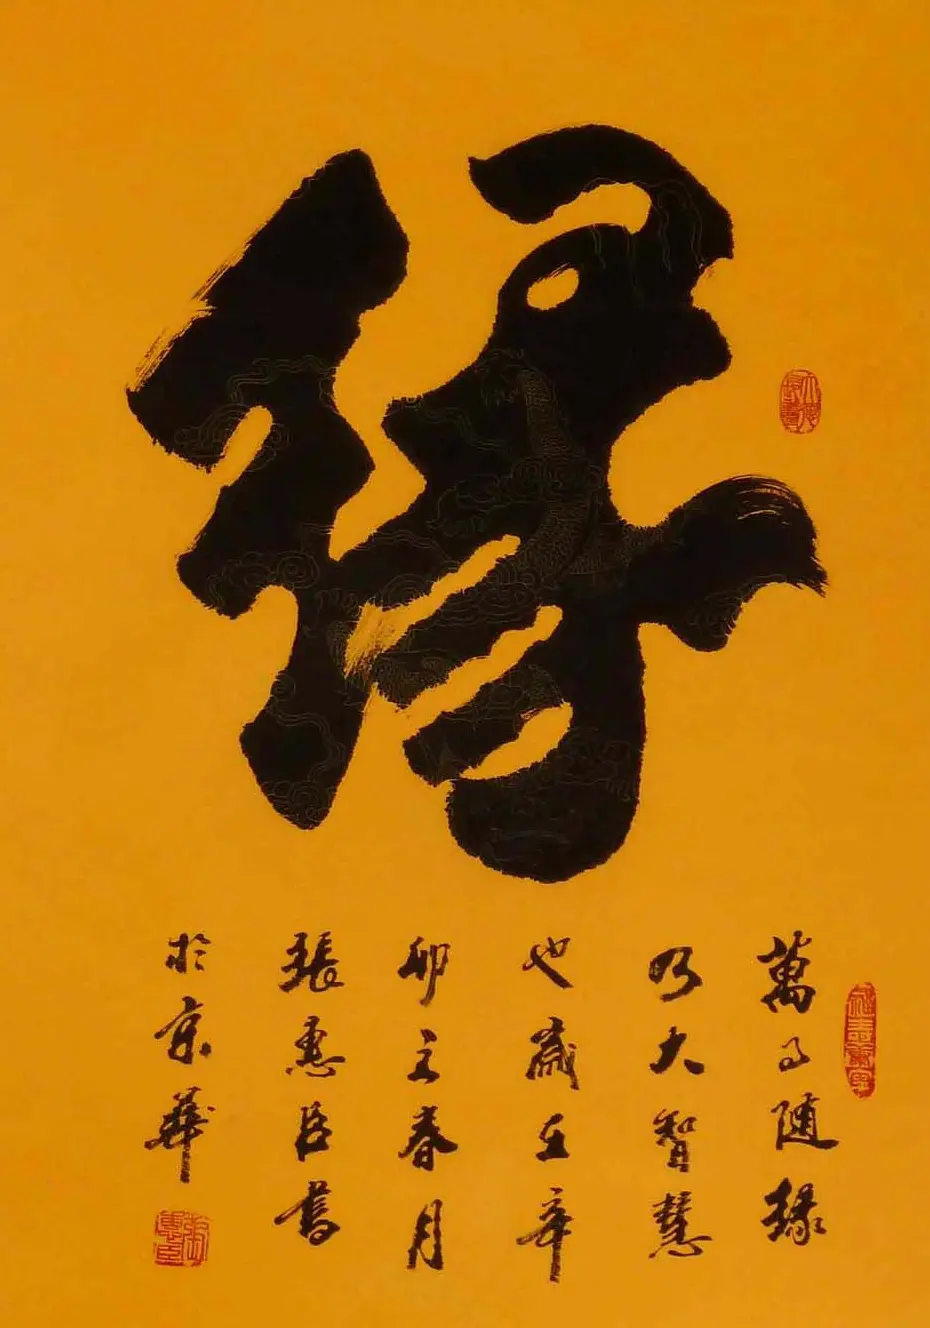 緣
萬事随緣
乃大智慧
也歲在辛
卯之春月
張惠臣書
於京華